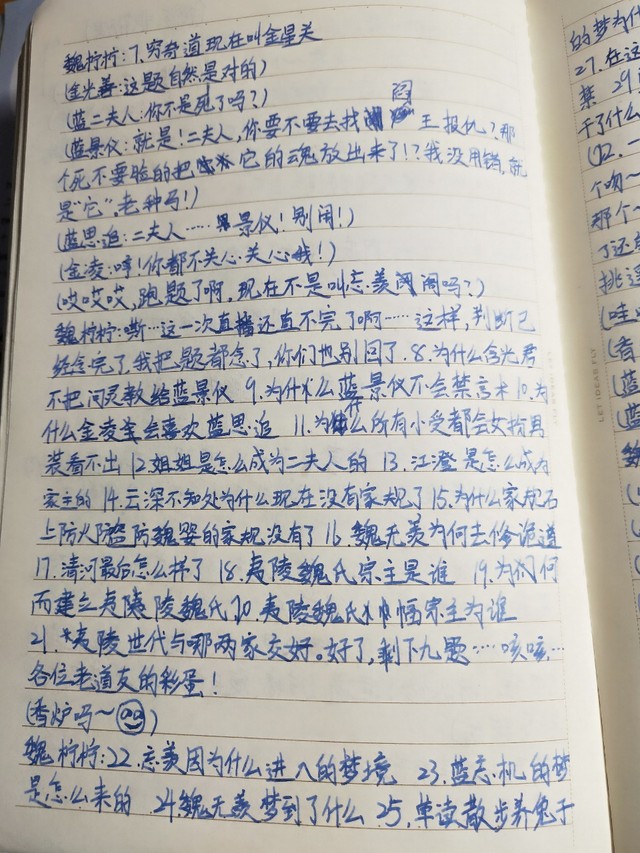 魏柠柠:7.穷奇道现在叫金星关
(金光善:这题自然是对的)
(蓝二夫人:你不是死了吗?)
(蓝景仪:就是!二夫人,你要不要去找阎王报仇?那
个死不要脸的把它的魂放出来了!?我没用错,就
是"它",老种马!)
(蓝思追:二夫人……景仪!别闹!)
(金凌:哼!你都不关心关心我!)
(哎哎哎,跑题了啊,现在不是叫忘羡阁阁吗?)
魏柠柠:嘶…这一次直播还直不完了啊……这样,判断已
经念完了,我把题都念了,你们也别回了.8.为什么含光君
不把问灵教给蓝景仪 9.为什么蓝景仪不会禁言术 10.为
什么金凌会喜欢蓝思追 11.为什么所有小受都会女指具
装看不出 12.姐姐是怎么成为二夫人的 13.江澄是怎么成为
家主的 14.云深不知处为什么现在没有家规了 15.为什么家规石
上防火防盗防魏婴的家规没有了 16.魏无羡为何去修诡道
17.清河最后怎么样了 18.夷陵魏氏宗主是谁 19.为何
而建立夷陵魏氏 20.夷陵魏氏巾帼宗主为谁
21.夷陵世代与哪两家交好。好了,剩下九题……咳咳…
各位老道友的彩蛋!
(香炉吗~)
魏柠柠:22.忘羡因为什么进入的梦境 23.蓝忘机的梦
是怎么来的 24.魏无羡梦到了什么 25.单读散步养兔子
的梦为什
27.在这
禁 29.
干了什么
个吻~
那个~
了还
挑这
(哇
(香
(蓝
(蓝
魏
LET IDEAS FLY